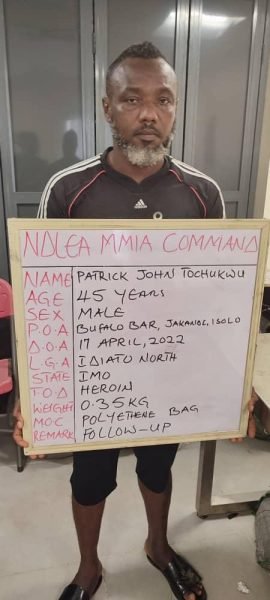 adidas
NDLEA MMIA COMMAND
NAME PATRICK JOHN TOCHUKWU
AGE 45 YEARS
SEX MALE
P.O.A BUFALO BAR, JAKANDE, ISOLO
D.O.A 17 APRIL, 2022
L.G.A IDIATO NORTH
STATE IMO
T.O.D HEROIN
WEIGHT 0.35KG
MOC POLYETHENE BAG
REMARK FOLLOW-UP